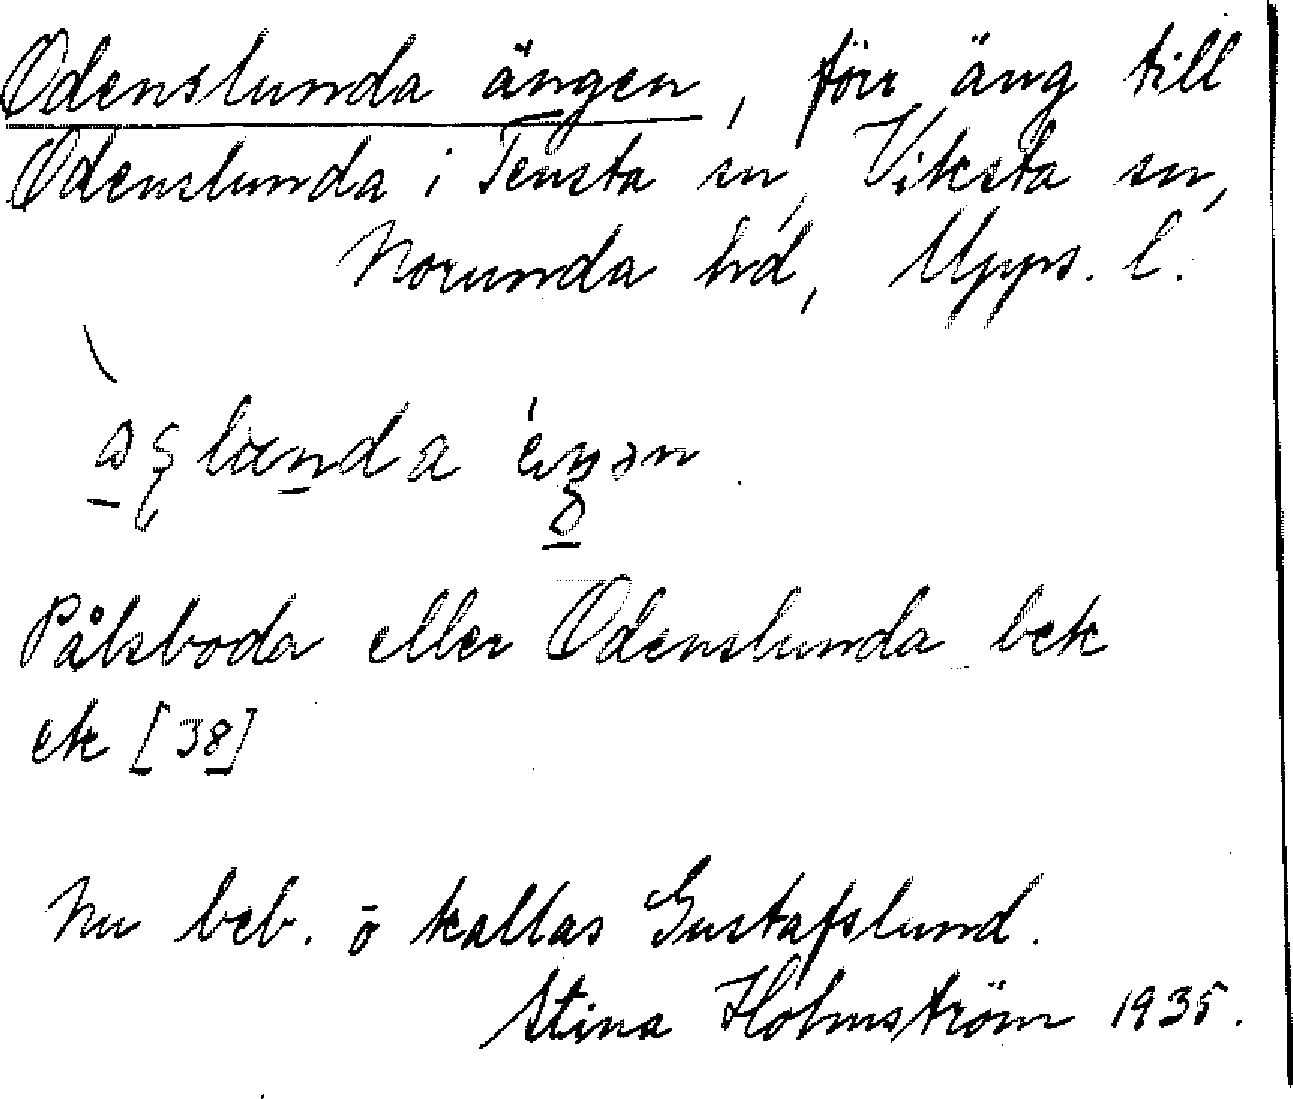 Odenslunda ängen, förr äng till
Odenslunda i Tensta sn, Viksta sn,
Norunda hd, Upps. l.
Pålsboda eller Odenslunda bek
ek [38]
Nu beb. ō kallas Gustafslund.
Stina Holmström 1935.